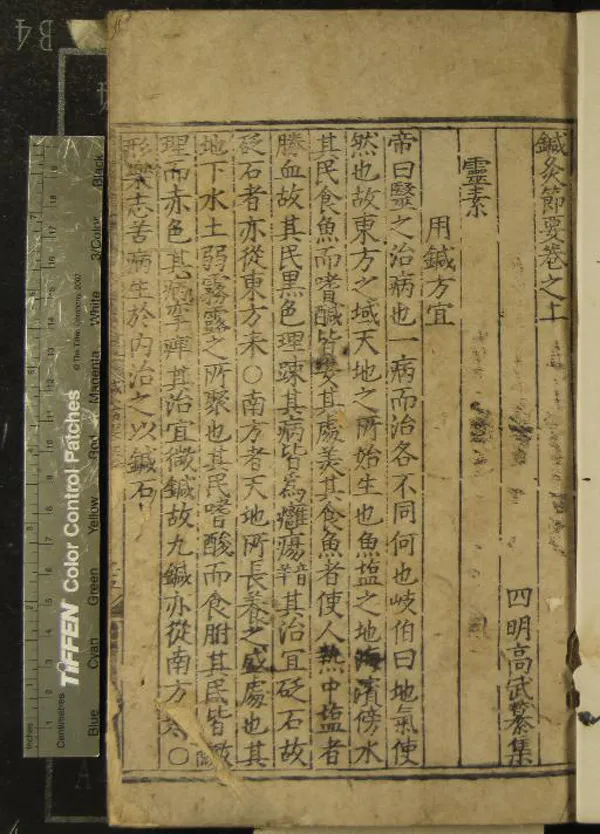 鍼灸節要卷之上
四明高武纂集
靈素
用鍼方宜
帝曰毉之治病也一病而治各不同何也岐伯曰地氣使
然也故東方之域天地之所始生也魚塩之地海濱傍水
其民食魚而嗜鹹皆安其處美其食魚者使人熱中塩者
勝血故其民黑色理踈其病皆為癰瘍其治宜砭石故
砭石者亦從東方来○南方者天地所長養之盛處也其
地下水土弱霧露之所聚也其民嗜酸而食胕其民皆緻
理而赤色其病攣痺其治宜微鍼故九鍼亦從南方来○
形樂志苦病生於內治之以鍼石
TIFFEN Color Control Patches
© The Tiffen Company, 2007
Inches
Centimetres
Blue
Cyan
Green
Yellow
Red
Magenta
White
3/Color
Black
B4